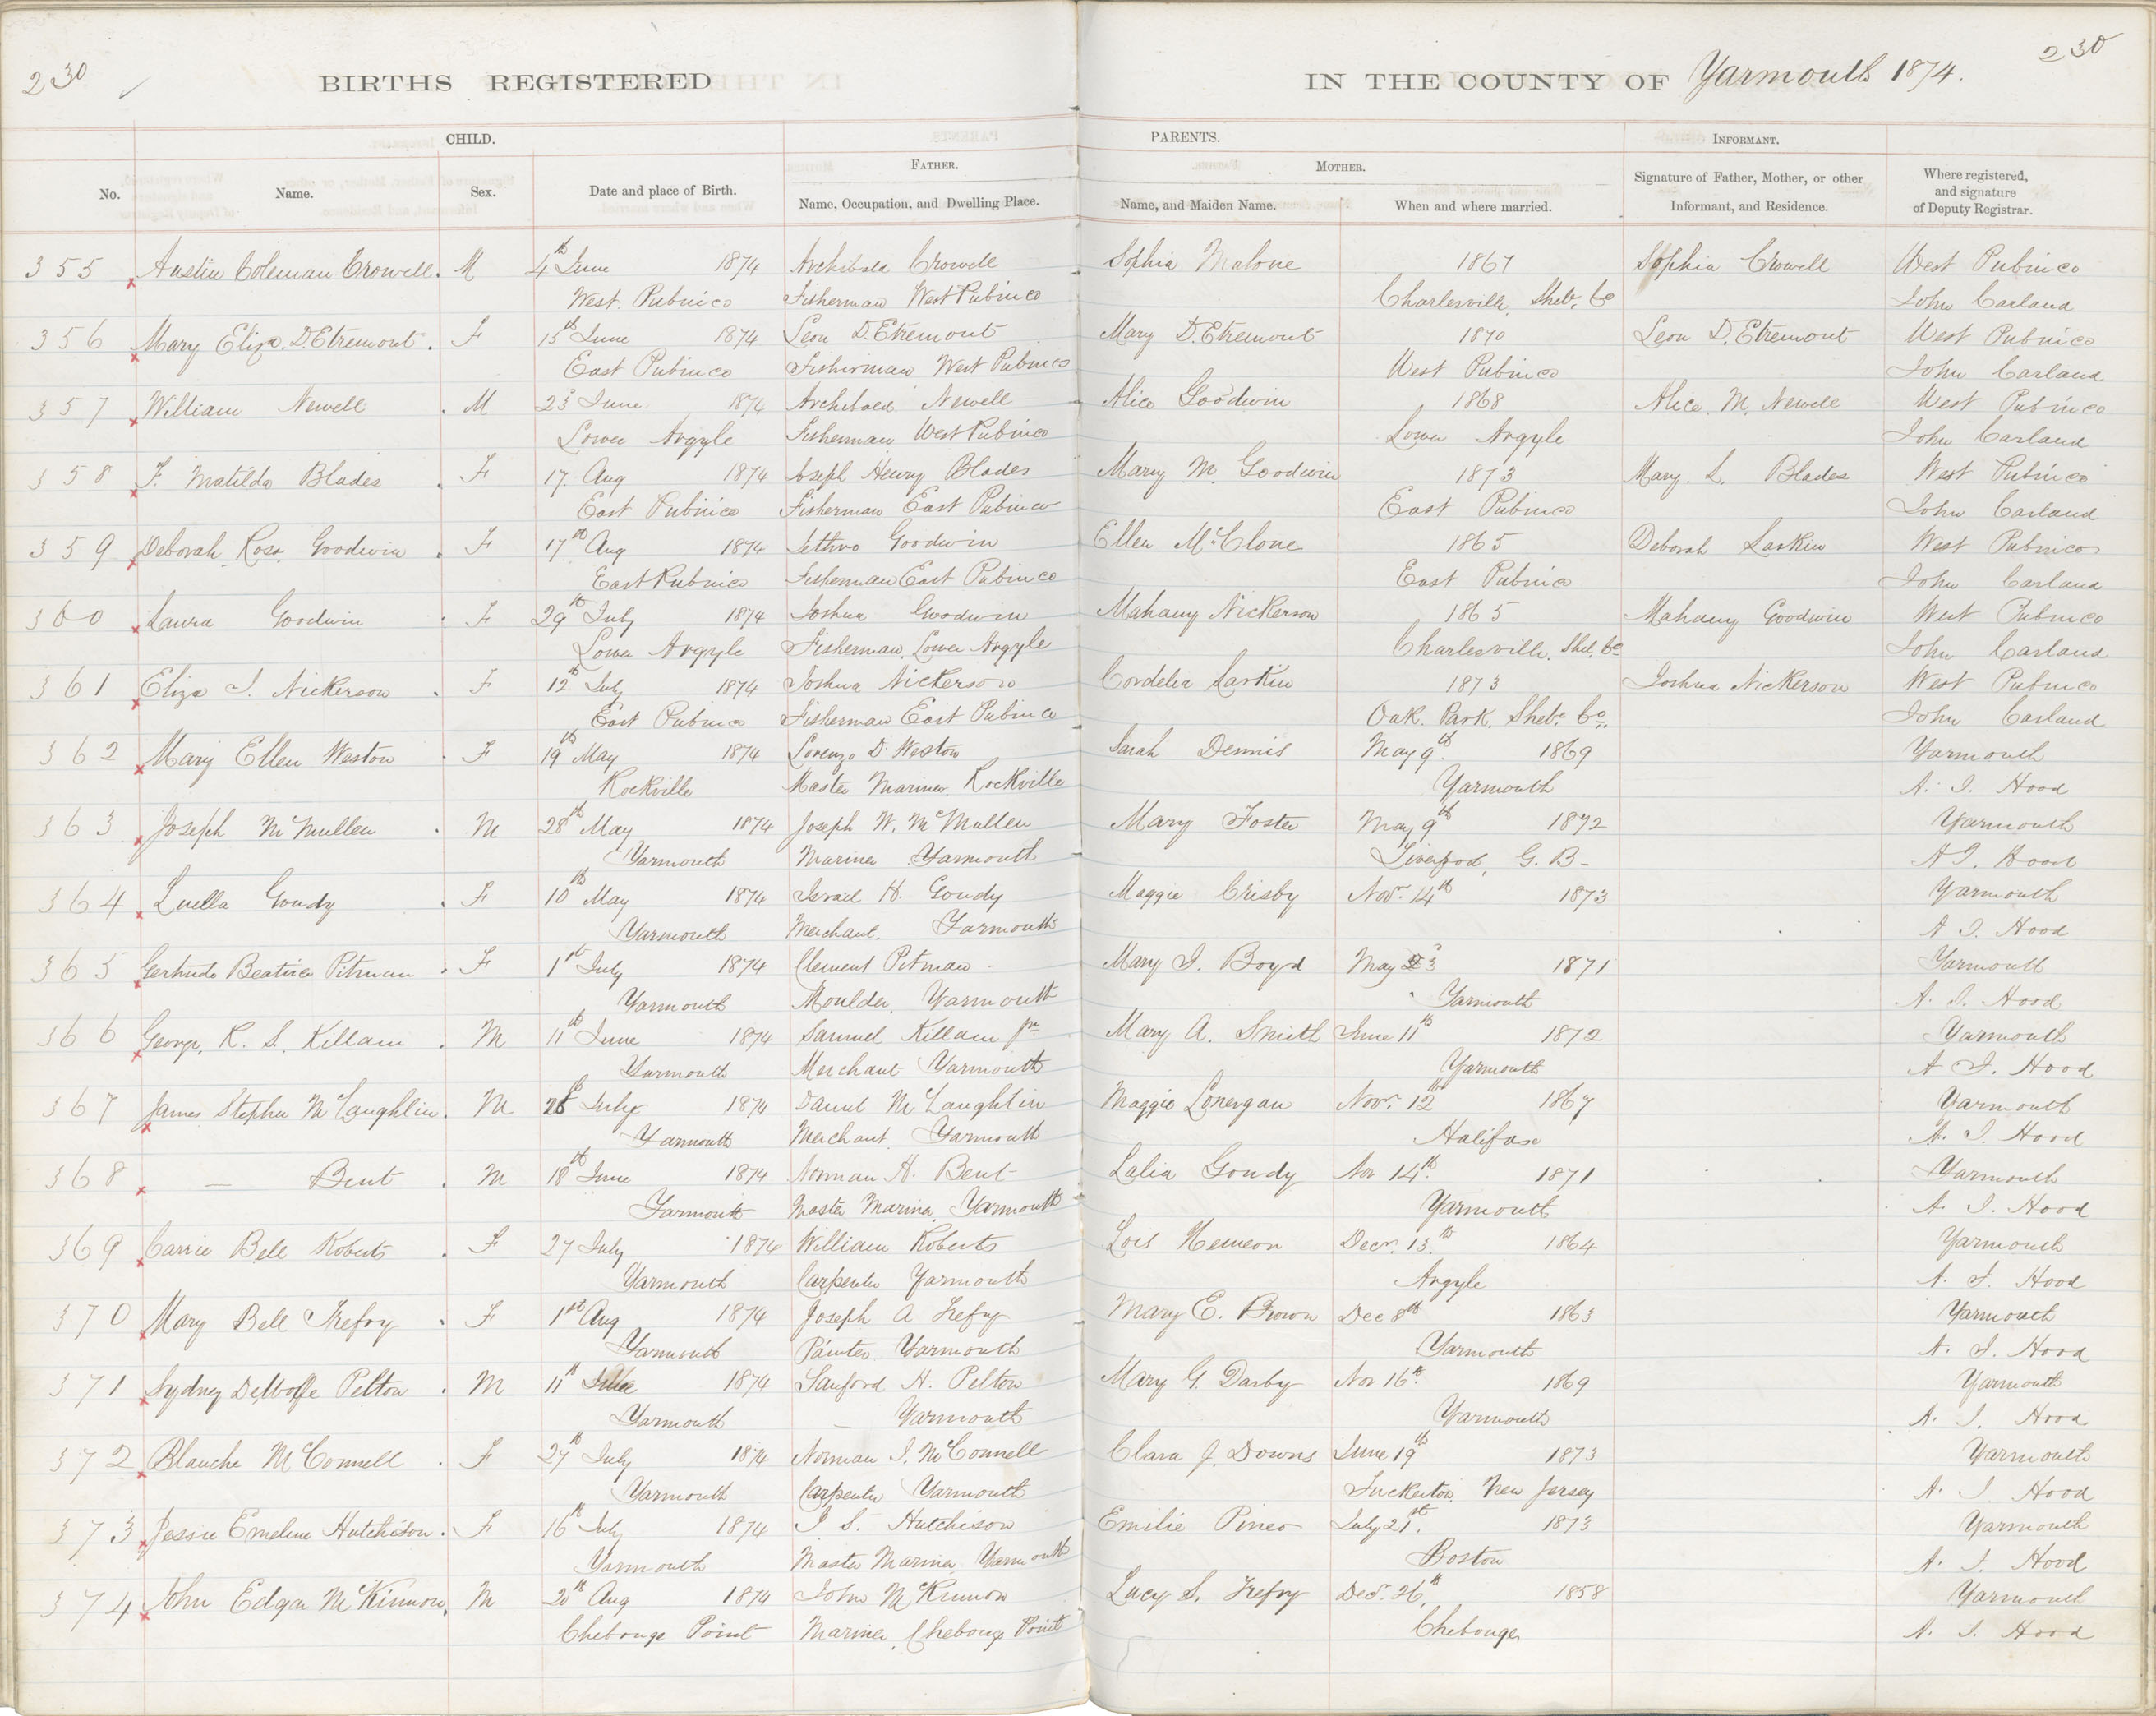 230 230
BIRTHS REGISTERED IN THE COUNTY OF Yarmouth 1874.
CHILD. PARENTS. INFORMANT.
FATHER. MOTHER.
No. Name. Sex. Date and place of Birth. Name, Occupation, and Dwelling Place. Name, and Maiden Name. When and where married. Signature of Father, Mother, or other Informant, and Residence. Where registered, and signature of Deputy Registrar.
355 Austin Coleman Crowell. M 4th June 1874 Archibald Crowell Sophia Malone 1867 Sophia Crowell West Pubnico
West. Pubnico Fisherman West Pubnico Charlesville, Shebe. Co John Carland
356 Mary Eliza. D.Etremont. F 15th June 1874 Leon D.Etremont Mary D.Etremont 1870 Leon D.Etremont West Pubnico
East Pubnico Fisherman West Pubnico West Pubnico John Carland
357 William Newell. M 23d June 1874 Archibald Newell Alice Goodwin 1868 Alice. M. Newell West Pubnico
Lower Argyle Fisherman West Pubnico Lower Argyle John Carland
358 F. Matilda Blades. F 17. Aug 1874 Joseph Henry Blades Mary M. Goodwin 1873 Mary. L. Blades West Pubnico
East Pubnico Fisherman East Pubnico East Pubnico John Carland
359 Deborah Rose Goodwin. F 17th Aug 1874 Jethro Goodwin Ellen McClone 1865 Deborah Larkin West Pubnico
East Pubnico Fisherman East Pubnico East Pubnico John Carland
360 Laura Goodwin. F 29th July 1874 Joshua Goodwin Mahany Nickerson 1865 Mahany Goodwin West Pubnico
Lower Argyle Fisherman, Lower Argyle Charlesville. Shel. Co John Carland
361 Eliza J. Nickerson. F 12th July 1874 Joshua Nickerson Cordelia Larkin 1873 Joshua Nickerson West Pubnico
East Pubnico Fisherman East Pubnico Oak. Park. Shebe. Co. John Carland
362 Mary Ellen Weston. F 19th May 1874 Lorenzo D. Weston Sarah Dennis May 9th 1869 Yarmouth
Rockville Master Mariner. Rockville Yarmouth A. J. Hood
363 Joseph McMullen. M 28th May 1874 Joseph W. McMullen Mary Foster May 9th 1872 Yarmouth
Yarmouth Mariner Yarmouth Liverpool, G. B- A J. Hood
364 Luella Goudy. F 10th May 1874 Israel H. Goudy Maggie Crisby Novr. 14th 1873 Yarmouth
Yarmouth Merchant. Yarmouth A J. Hood
365 Gertrude Beatrice Pitman. F 1st July 1874 Clement Pitman Mary J. Boyd May 23 1871 Yarmouth
Yarmouth Moulder, Yarmouth Yarmouth A. J. Hood
366 George. R. S. Killam. M 11th June 1874 Samuel Killam jr Mary A. Smith June 11th 1872 Yarmouth
Yarmouth Merchant Yarmouth Yarmouth A J. Hood
367 James Stephen McLaughlin. M July 1874 Daniel McLaughlin Maggie Lonergan Novr. 12th 1867 Yarmouth
Yarmouth Merchant Yarmouth Halifax A. J. Hood
368 — Bent. M 18th June 1874 Norman H. Bent Lalia Goudy Nov 14th. 1871 Yarmouth
Yarmouth Master Mariner, Yarmouth Yarmouth A. J. Hood
369 Carrie Bell Roberts. F 27 July 1874 William Roberts Lois Hemeon Decr. 13.th 1864 Yarmouth
Yarmouth Carpenter Yarmouth Argyle A. J. Hood
370 Mary Bell Trefry. F 1st Aug 1874 Joseph A Trefry Mary E. Brown Dec 8th 1863 Yarmouth
Yarmouth Painter Yarmouth Yarmouth A. J. Hood
371 Sydney DeWolfe Pelton. M 11th 1874 Sanford H. Pelton Mary G. Darby Nov 16th. 1869 Yarmouth
Yarmouth — Yarmouth Yarmouth A. J. Hood
372 Blanche McConnell. F 27th July 1874 Norman J. McConnell Clara J. Downs June 19th 1873 Yarmouth
Yarmouth Carpenter Yarmouth Tuckerton, New Jersey A. J Hood
373 Jessie Emeline Hutchison. F 16th July 1874 J S. Hutchison Emilie Pineo July 21st. 1873 Yarmouth
Yarmouth Master Mariner Yarmouth Boston A. J. Hood
374 John Edgar McKinnon. M 20th Aug 1874 John McKinnon Lucy S. Trefry Decr. 26th. 1858 Yarmouth
Chebouge Point Mariner, Chebouge Point Chebouge, A. J. Hood